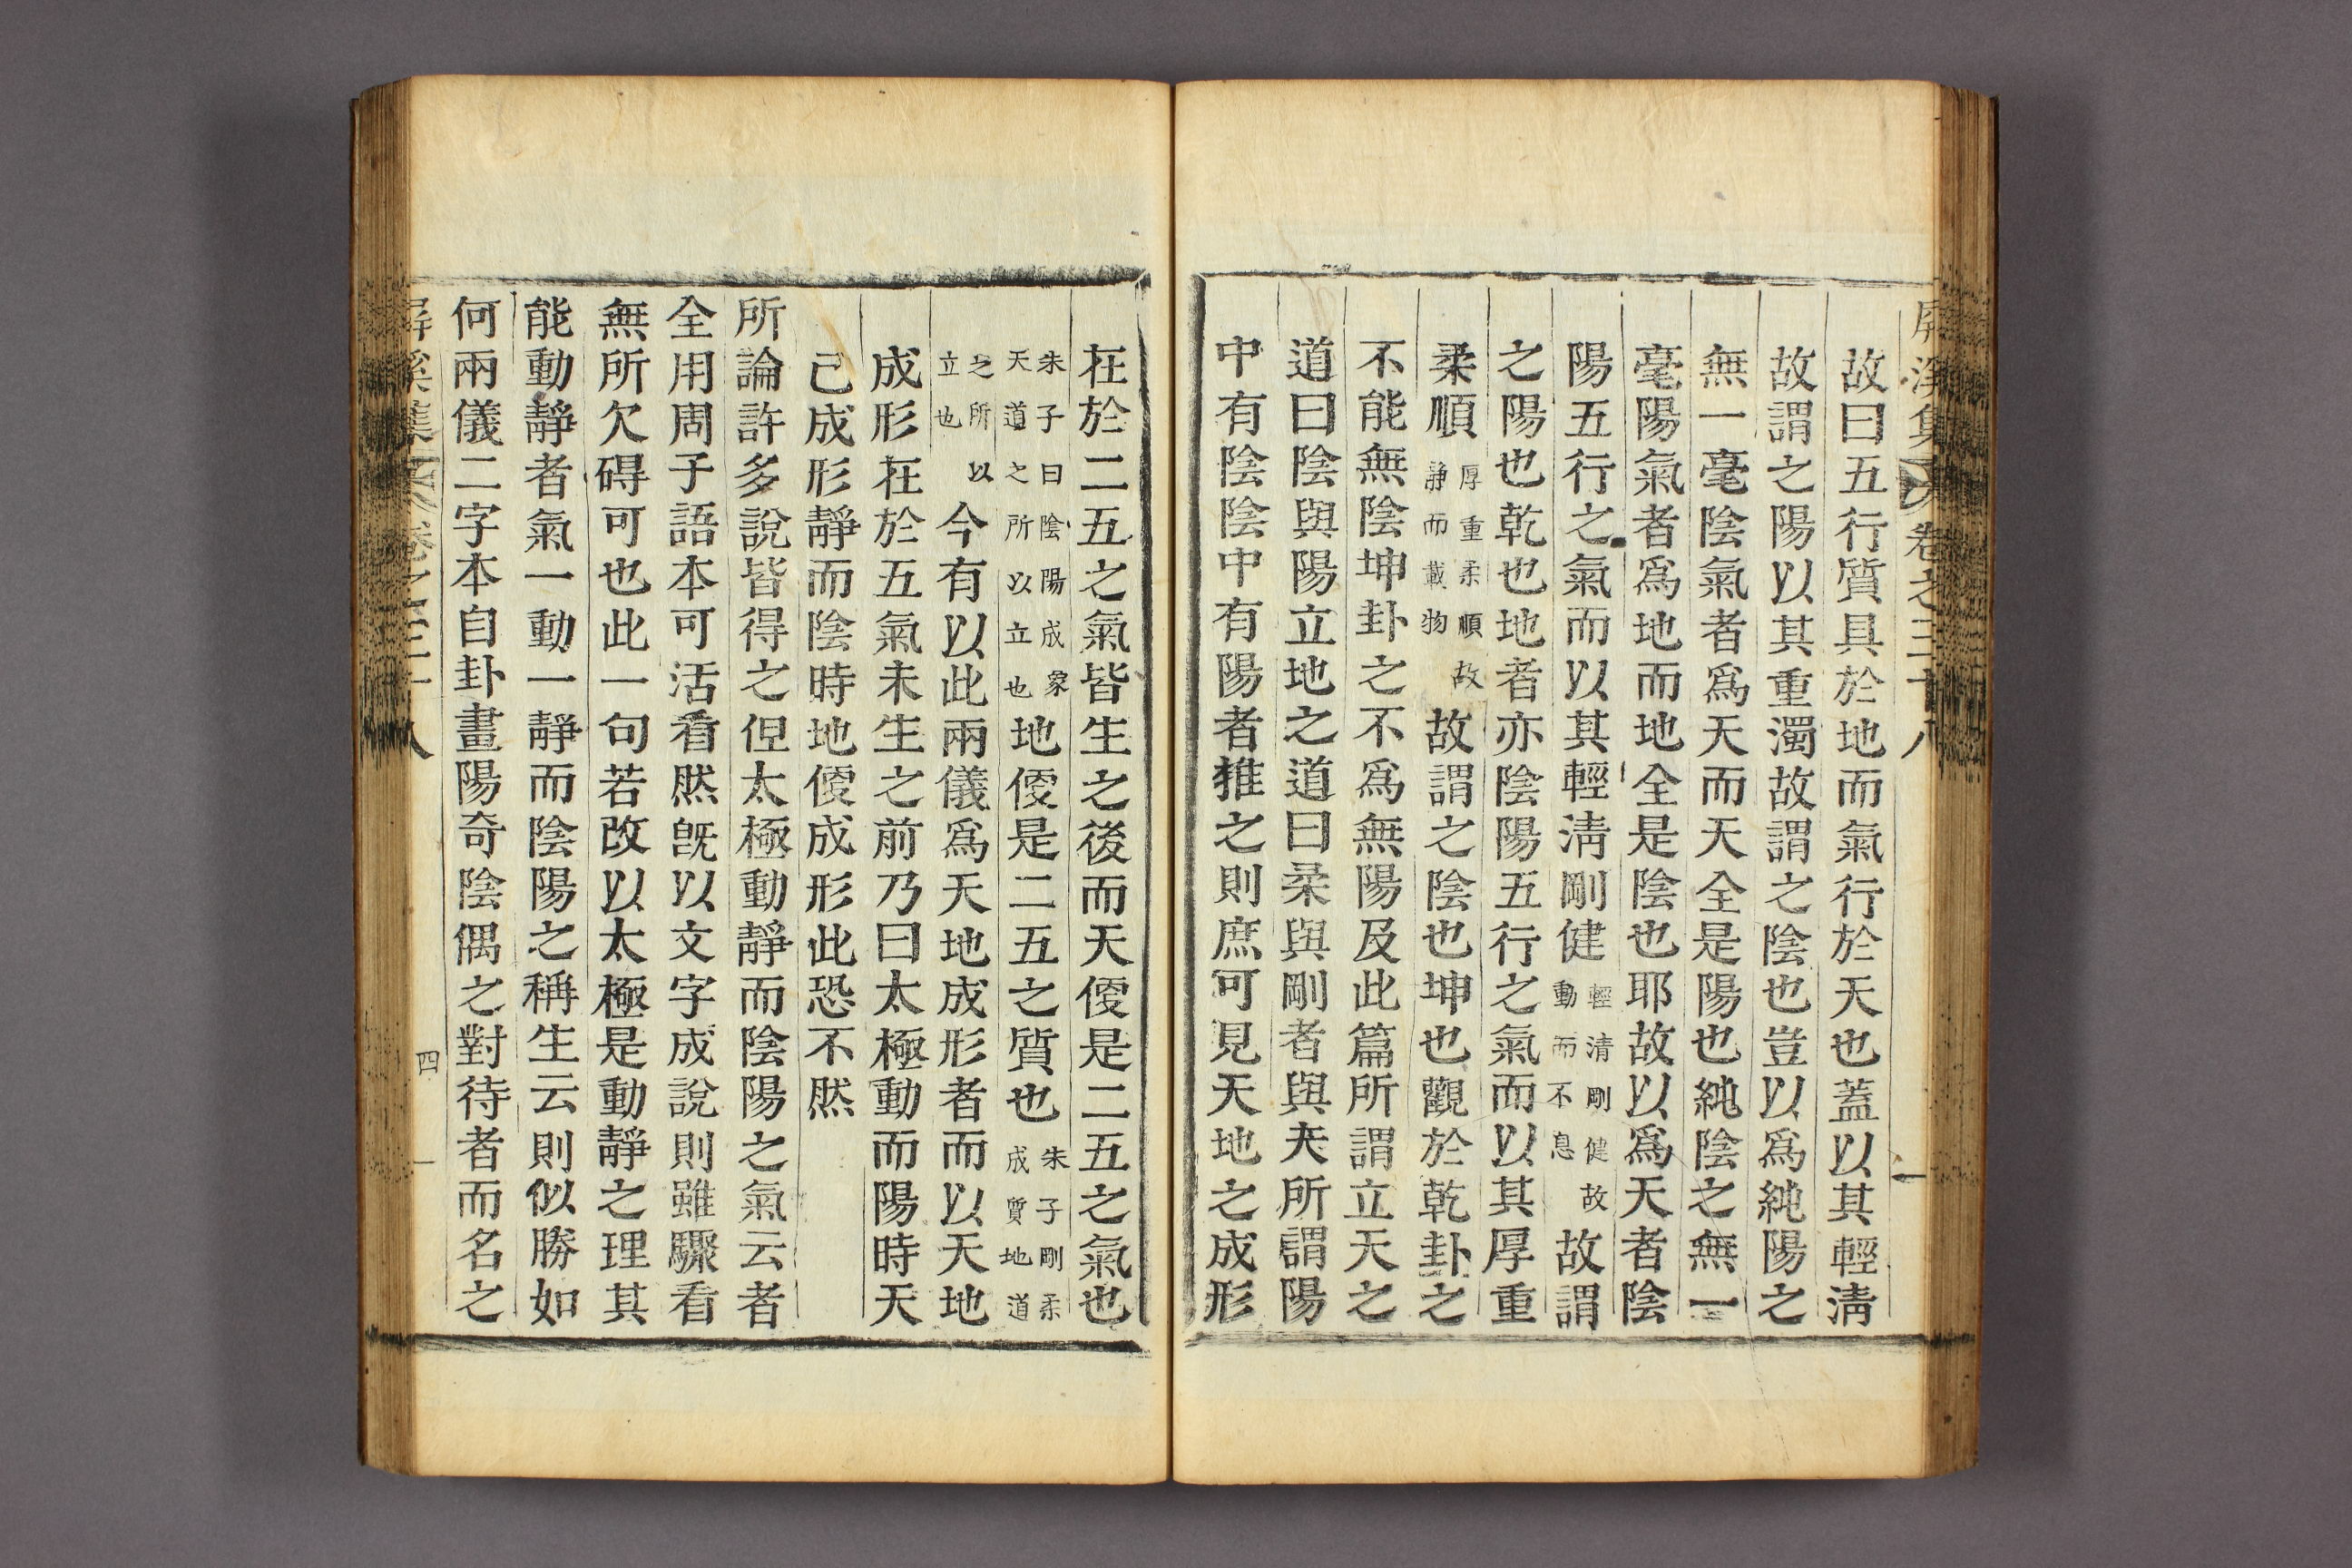 屛溪集 卷之三十八
故曰五行質具於地而氣行於天也蓋以其輕淸
故謂之陽以其重濁故謂之陰也豈以爲純陽之
無一毫陰氣者爲天而天全是陽也純陰之無一
毫陽氣者爲地而地全是陰也耶故以爲天者陰
陽五行之氣而以其輕淸剛健輕淸剛健故動而不息故謂
之陽也乾也地者亦陰陽五行之氣而以其厚重
柔順厚重柔順故靜而載物故謂之陰也坤也觀於乾卦之
不能無陰坤卦之不爲無陽及此篇所謂立天之
道曰陰與陽立地之道曰柔與剛者與夫所謂陽
中有陰陰中有陽者推之則庶可見天地之成形
在於二五之氣皆生之後而天便是二五之氣也
朱子曰陰陽成象天道之所以立也地便是二五之質也朱子剛柔成質地道
之所以立也今有以此兩儀爲天地成形者而以天地
成形在於五氣未生之前乃曰太極動而陽時天
已成形靜而陰時地便成形此恐不然
所論許多說皆得之但太極動靜而陰陽之氣云者
全用周子語本可活看然旣以文字成說則雖驟看
無所欠碍可也此一句若改以太極是動靜之理其
能動靜者氣一動一靜而陰陽之稱生云則似勝如
何兩儀二字本自卦畫陽奇陰偶之對待者而名之
屛溪集 卷之三十八 四